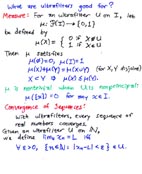 What are ultrafilters good for?
Measure: For an ultrafilter U on I, let
μ: P(I) → {0,1}
be defined by
μ(X) = { 0 if X∉U
1 if X∈U
Then μ satisfies
μ(∅)=0, μ(I)=1
μ(X)+μ(Y) = μ(X∪Y) (for X,Y disjoint)
X⊂Y ⇒ μ(X) ≤ μ(Y).
μ is nontrivial when U is nonprincipal:
μ({x})=0 for any x∈I.
Convergence of Sequences:
With ultrafilters, every sequence of
real numbers converges.
Given an ultrafilter U on ℕ,
we define lim xₙ = L if
∀ε>0, {n∈ℕ : |xₙ-L|<ε} ∈ U.